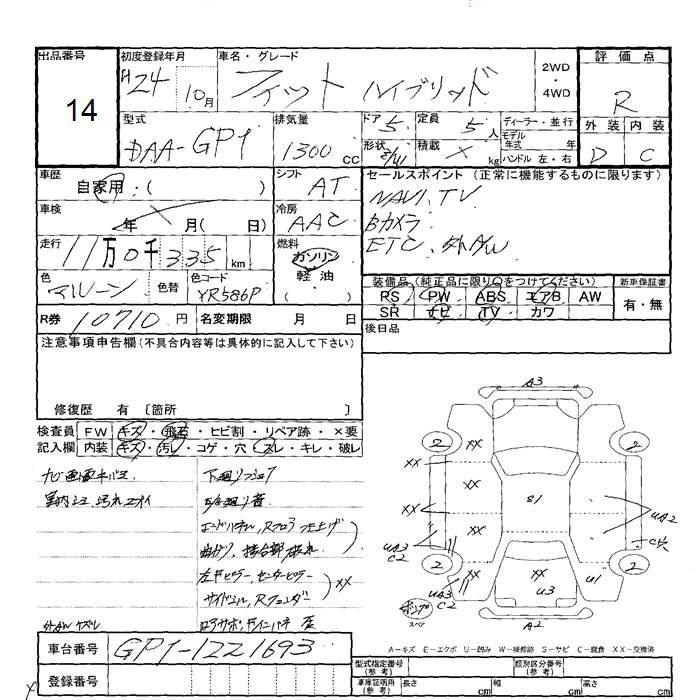 出品番号
14
初度登録年月
H24 10月
車名・グレード
フィット ハイブリッド
2WD
・
4WD
評価点
R
外装 内装
D C
型式
DAA-GP1
排気量
1300 CC
ドア 5
定員 5 人
形状
積載 × kg
ディーラー・並行
モデル
年式 年
ハンドル 左・右
車歴
自家用・( )
車検
年 月( 日)
走行
11万0千335 km
色
マルーン
色替
色コード
YR586P
シフト
AT
冷房
AAC
燃料
ガソリン
軽油
( )
セールスポイント (正常に機能するものに限ります)
NAVI、TV
Bカメラ
ETC、外AW
装備品(純正品に限り○をつけてください)
新車保証書
RS PW ABS エアB AW
SR ナビ TV カワ
有・無
R券 10710 円
名変期限 月 日
後日品
注意事項申告欄(不具合内容等は具体的に記入して下さい)
修復歴 有 〔箇所 〕
検査員
記入欄
FW キズ・飛石・ヒビ割・リペア跡・×要
内装 キズ・汚レ・コゲ・穴・スレ・キレ・破レ
下廻りフショク
エンドパネル、Rフロア 仕上げ
曲がり、接合部
左Fピラー、センターピラー
サイドシル、Rフェンダー
XX
外AW
A3
2
2
XX
XX
XX
XX
S1
XX
UA2
UA3
C2
C穴
2
2
XX
U3
U1
UA3
C2
スペア
A2
A-キズ E-エクボ U-凹み W-補修跡 S-サビ C-腐食 XX-交換済
車台番号
GP1-1221693
登録番号
型式指定番号
(参考)
類別区分番号
(参考)
車庫証明用
(参考)
長さ cm 幅 cm 高さ cm